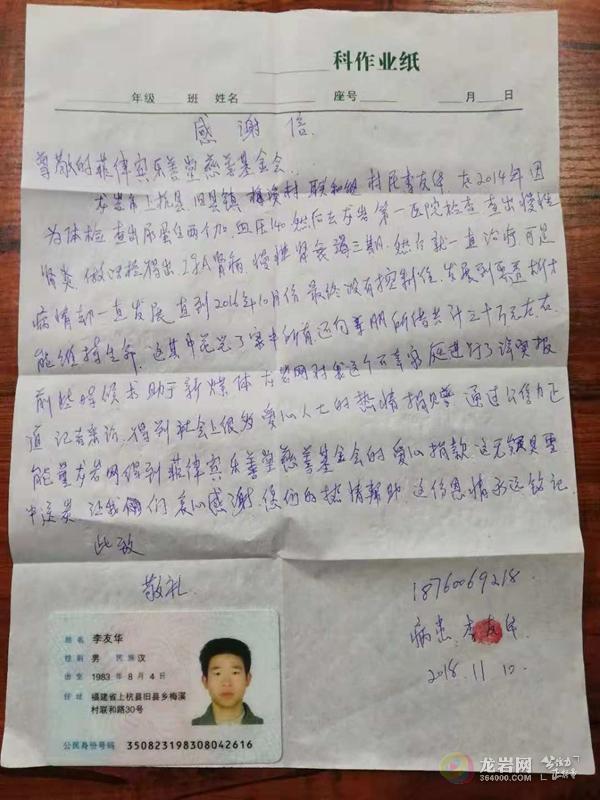 科作业纸
年级 班 姓名 座号 月 日
感谢信
尊敬的菲律宾乐善堂慈善基金会:
龙岩市上杭县旧县镇梅溪村联和组村民李友华,在2014年因
为体检查出尿蛋白两个加,血压140,然后去龙岩第一医院检查,查出慢性
肾炎,做活检得出,IgA肾病,慢性肾衰竭三期,然后就一直治疗,可是
病情却一直发展,直到2016年10月份最终没有控制住,发展到要透析才
能维持生命,这其中花光了家中所有,还向亲朋所借共计三十万元左右,
前些时候求助于新媒体龙岩网对我这个不幸家庭进行了详实报
道,记者亲访,得到社会上很多爱心人士的热情捐赠,通过公信力正
能量龙岩网得到菲律宾乐善堂慈善基金会的爱心捐款,这无疑是雪
中送炭,让我们衷心感谢,您们的热情帮助,这份恩情永远铭记.
此致
敬礼
18760069218.
病患:李友华
2018.11.10.
姓名 李友华
性别 男 民族 汉
出生 1983 年 8 月 4 日
住址 福建省上杭县旧县乡梅溪
村联和路30号
公民身份号码 350823198308042616
龙岩网
364000.com